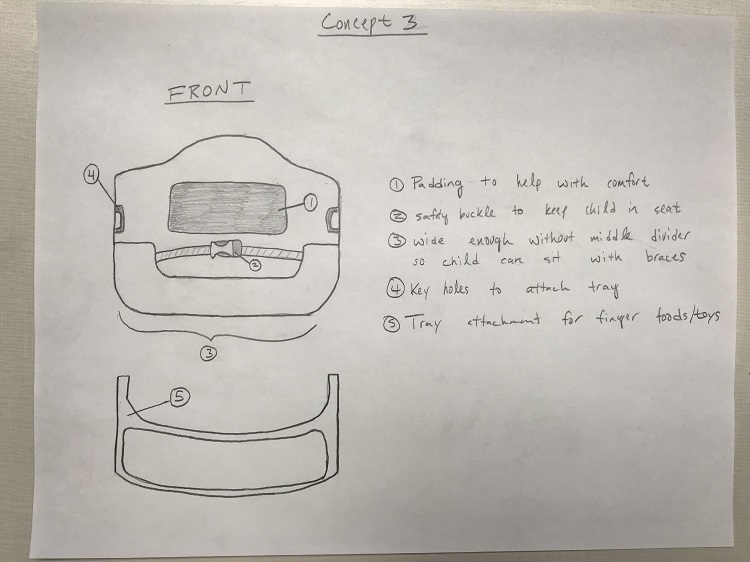 Concept 3
FRONT
4
1
2
3
5
① Padding to help with comfort
② safety buckle to keep child in seat
③ wide enough without middle divider
so child can sit with braces
④ Key holes to attach tray
⑤ Tray attachment for finger foods/toys